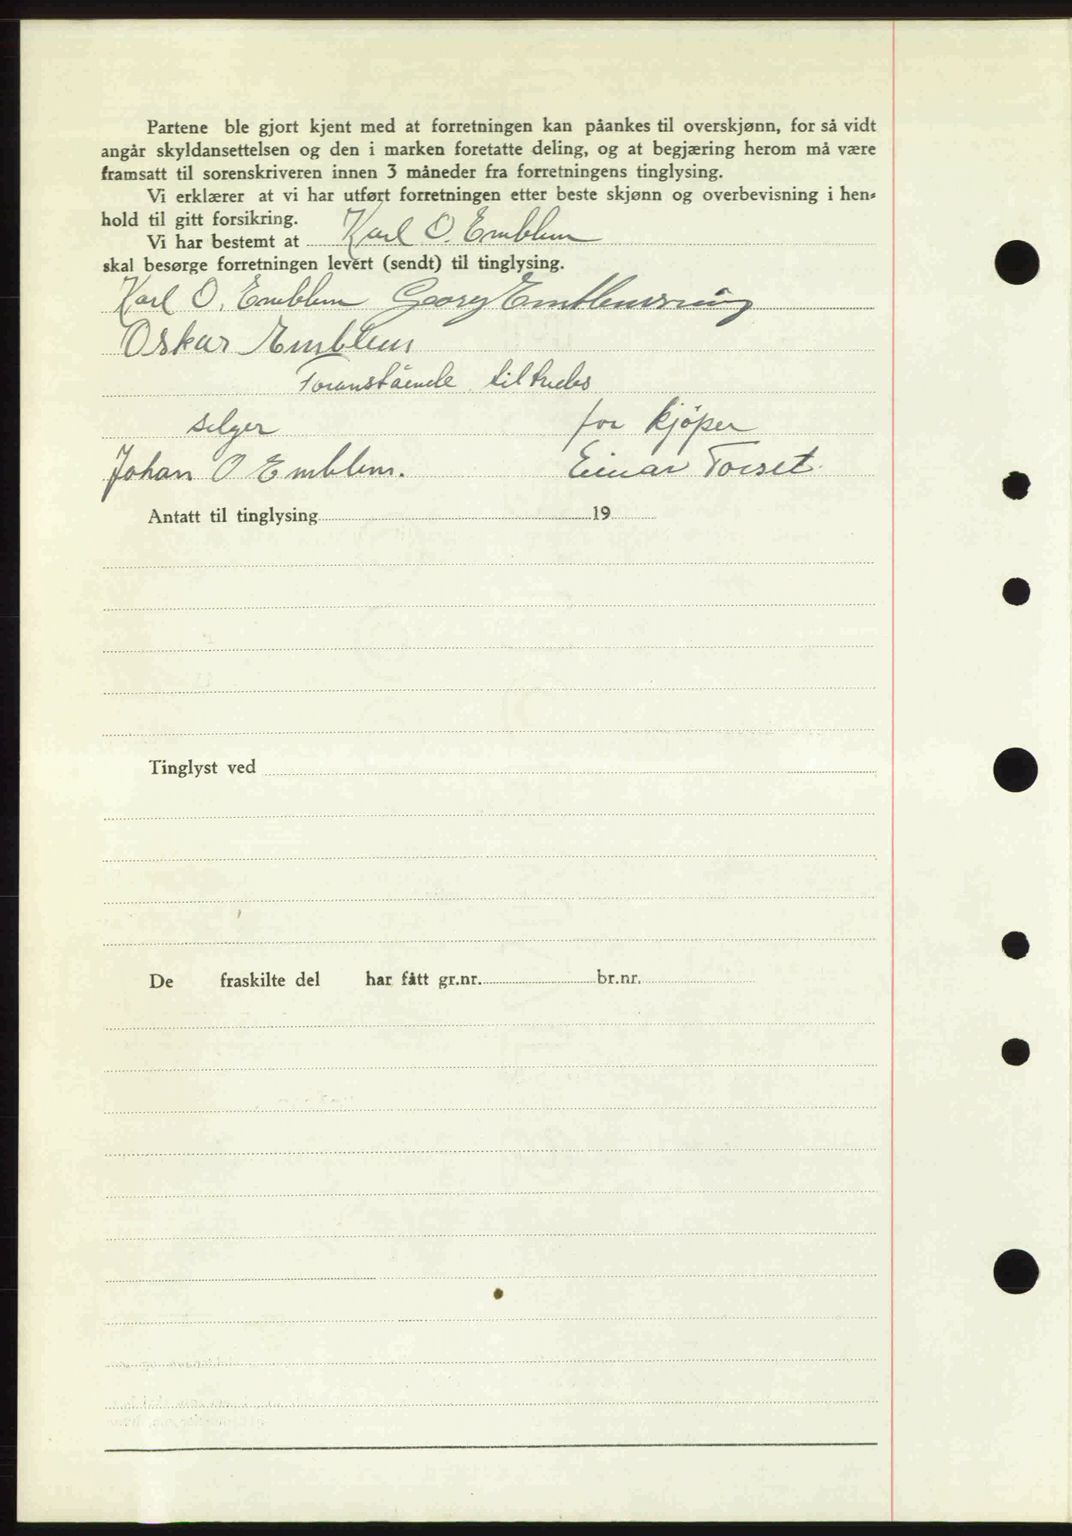 Partene ble gjort kjent med at forretningen kan påankes til overskjønn, for så vidt
angår skyldansettelsen og den i marken foretatte deling, og at begjæring herom må være
framsatt til sorenskriveren innen 3 måneder fra forretningens tinglysing.
Vi erklærer at vi har utført forretningen etter beste skjønn og overbevisning i hen-
hold til gitt forsikring.
Vi har bestemt at Karl O. Emblem
skal besørge forretningen levert (sendt) til tinglysing.
Karl O. Emblem Georg Emblemsvåg
Oskar Emblem
Foranstående tiltredes
selger for kjöper
Johan O Emblem. Einar Torset.
Antatt til tinglysing 19
Tinglyst ved
De fraskilte del har fått gr.nr. br.nr.